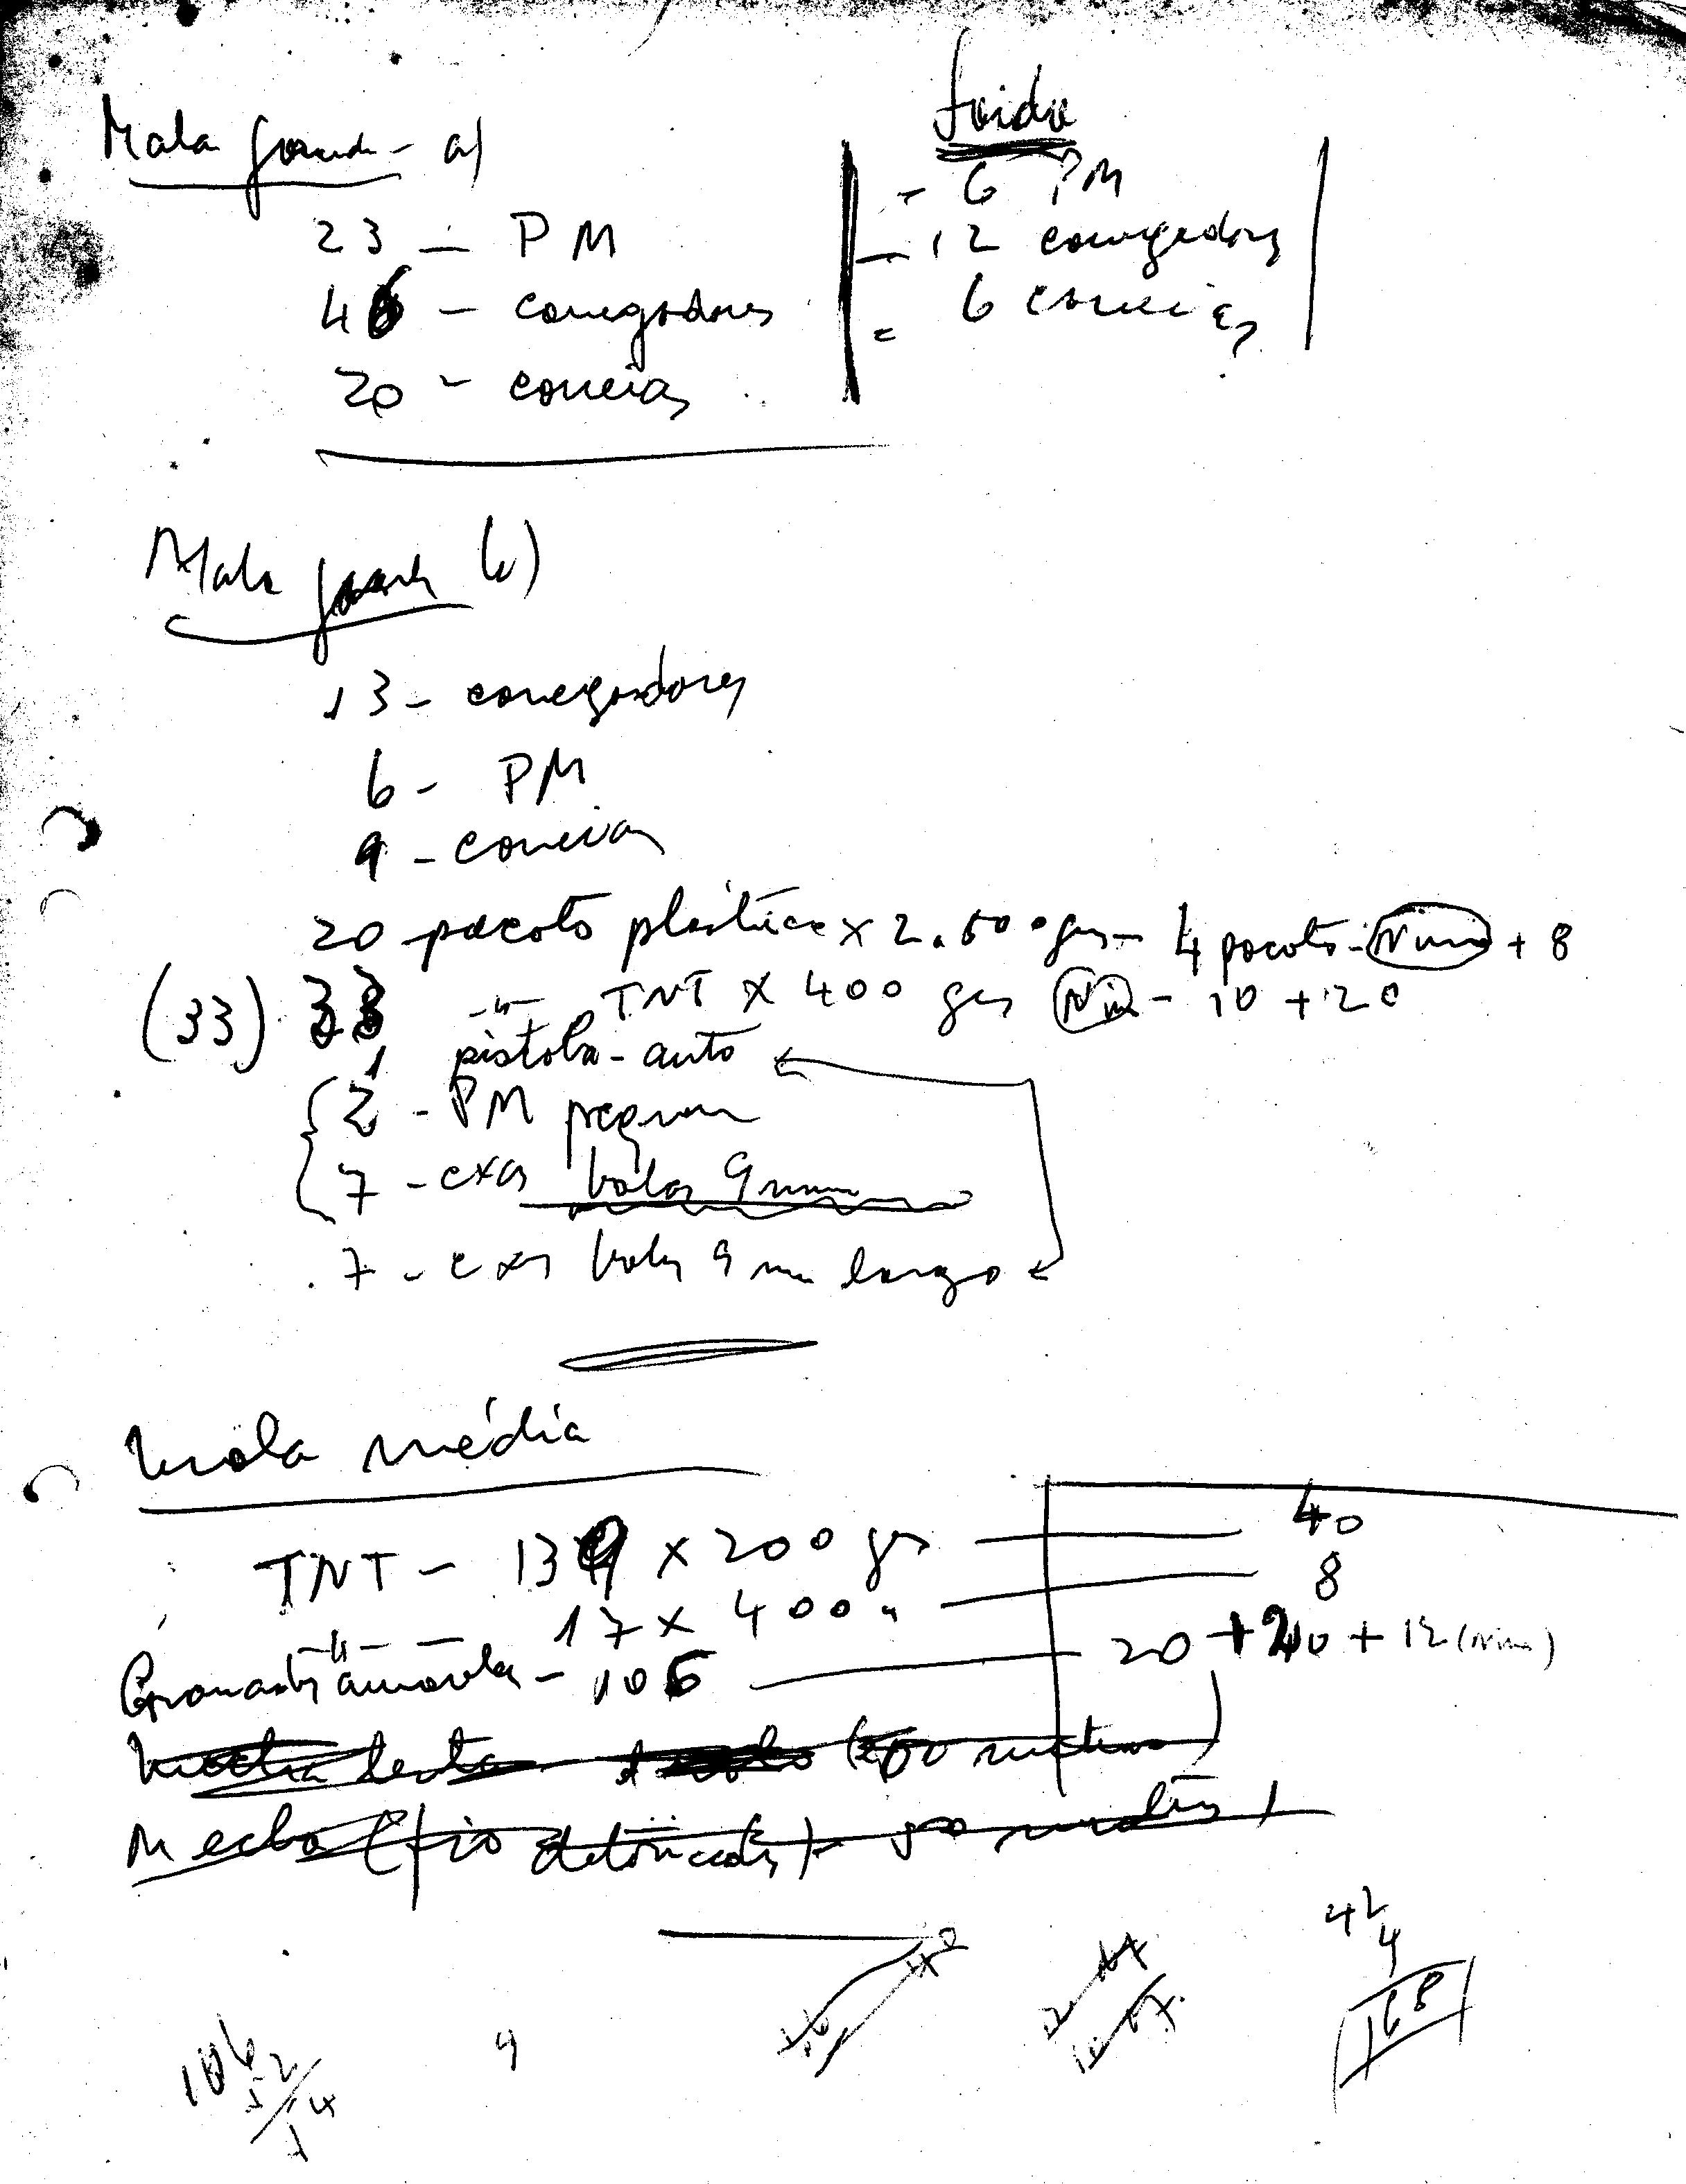 Mala grande - a)
23 - PM
46 - carregadores
20 - correias
saída
- 6 PM
- 12 carregadores
= 6 correias
Mala grande b)
13 - carregadores
6 - PM
9 - correias
20 pacotes plástico x 2.500 grs - 4 pacotes - Nino + 8
(33) 33 -"- TNT x 400 grs Nino - 10 + 20
1 pistola - auto
2 - PM pequena
7 - cxas balas 9 mm
7 - cxas balas 9 mm largo
Mala média
TNT - 139 x 200 grs - 40
-"- - 17 x 400 " - 8
Granadas amarelas - 106 - 20 + 20 + 12 (Nino)
Mecha lenta (200 metros)
Mecha (fio detonador) - 50 metros
106
52
9
42
4
168